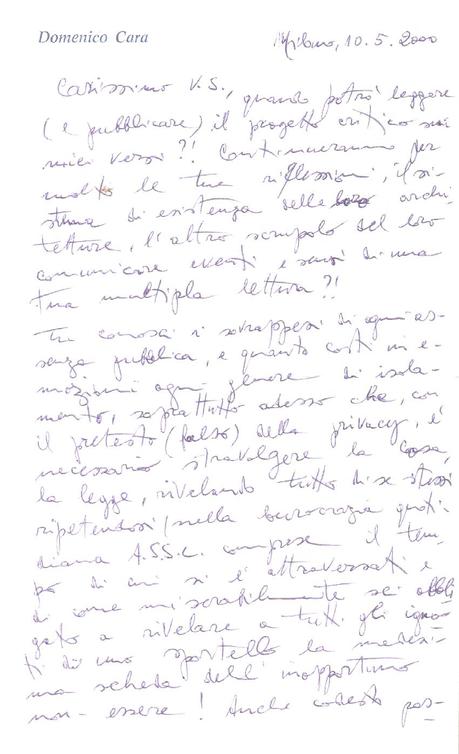 Domenico Cara
Milano, 10.5.2000
Carissimo V.S., quando potrò leggere
(e pubblicare) il progetto critico sui
miei versi?! Continueranno per
molto le tue riflessioni, il si-
stema di esistenza delle loro archi-
tetture, l'altro scrupolo del loro
comunicare eventi e sensi di una
tua multipla lettura?!
Tu conosci i sovrappesi di ogni as-
senza pubblica, e quanto costi in e-
mozioni ogni genere di isola-
mento, soprattutto adesso che, con
il pretesto (falso) della privacy, è
necessario stravolgere la cosa,
la legge, rivelando tutto di se stessi
ripetendosi nella burocrazia quoti-
diana A.S.S.L. comprese il tem-
po di cui si è attraversati e
di come miserabilmente sei obbli
gato a rivelare a tutti gli igno-
ti di uno sportello la medesi-
ma scheda dell'inopportuno
non-essere! Anche codesto pas-